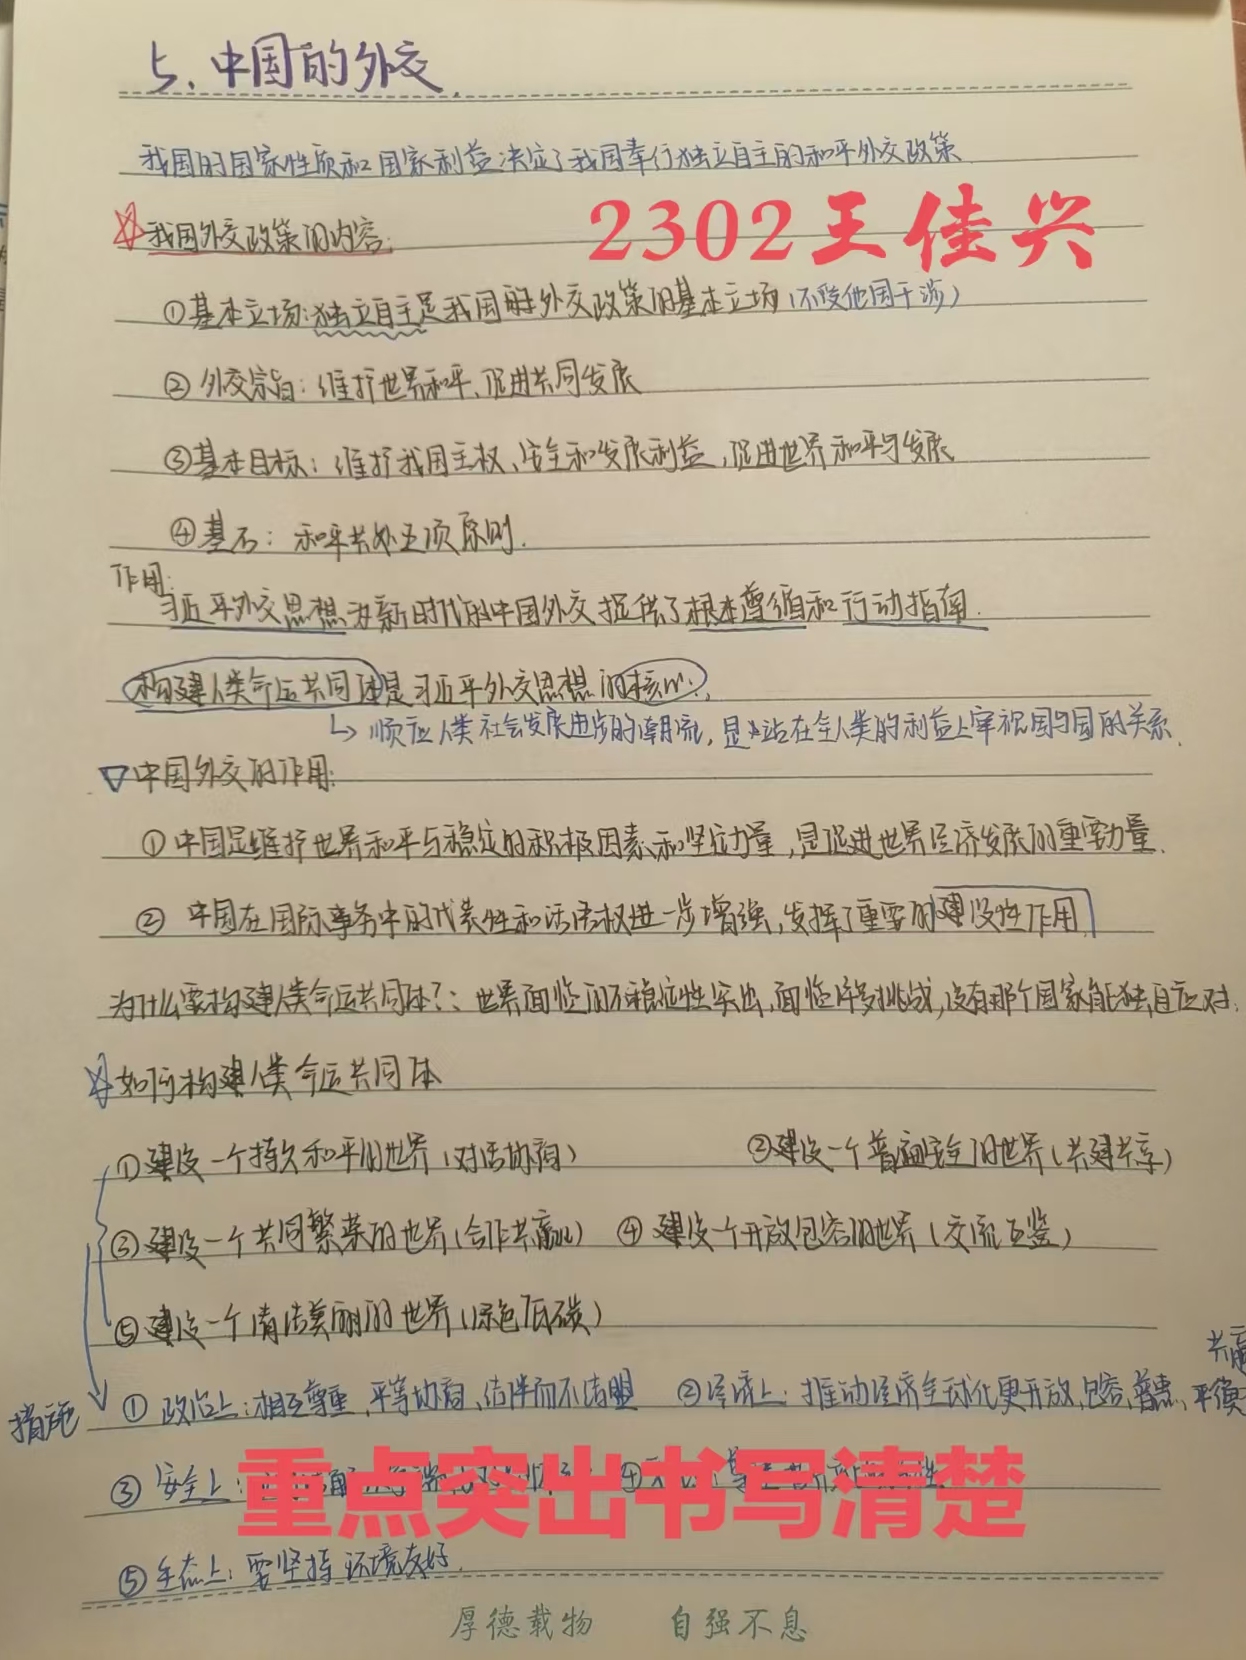 5、中国的外交
我国的国家性质和国家利益决定了我国奉行独立自主的和平外交政策
我国外交政策的内容:
2302王佳兴
①基本立场:独立自主是我国外交政策的基本立场(不受他国干涉)
②外交宗旨:维护世界和平、促进共同发展
③基本目标:维护我国主权、安全和发展利益,促进世界和平与发展
④基石:和平共处五项原则.
作用:
习近平外交思想为新时代的中国外交提供了根本遵循和行动指南.
构建人类命运共同体是习近平外交思想的核心.
↳顺应人类社会发展进步的潮流,是站在全人类的利益上审视国与国的关系.
▽中国外交的作用:
①中国是维护世界和平与稳定的积极因素和坚定力量,是促进世界经济发展的重要力量.
②中国在国际事务中的代表性和话语权进一步增强,发挥了重要的建设性作用
为什么要构建人类命运共同体?:世界面临的不稳定性突出,面临许多挑战,没有哪个国家能独自应对.
如何构建人类命运共同体
①建设一个持久和平的世界(对话协商) ②建设一个普遍安全的世界(共建共享)
③建设一个共同繁荣的世界(合作共赢) ④建设一个开放包容的世界(交流互鉴)
⑤建设一个清洁美丽的世界(绿色低碳)
共赢
措施 ①政治上:相互尊重、平等协商,结伴而不结盟 ②经济上:推动经济全球化更开放,包容、普惠、平衡
③安全上: ④
重点突出书写清楚
⑤生态上:要坚持环境友好.
厚德载物 自强不息